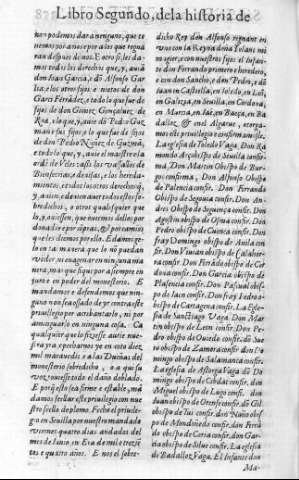 Libro Segundo, de la historia de
mos podemos dar a ninguno, que te
nemos por a nos e por a los que regna
ran despues de nos. E otro si les da-
mos todos los derechos que, y, aui a
don Ioan Garcia, e dõ Alfonso Gar
cia, e los otros fijos e nietos de don
Garci Ferrãdez, e todo lo que fue de
fijos de don Gomez Gonçaluez de
Roa, e lo que, y, auie dõ Pedro Guz
man e sus fijos e lo que fue de fijos
de don Pedro Nuñez de Guzmã,
e todo lo que, y, auie el maestre e la
ordẽ de Velez
Bienfetrias, e deuisas, e los hereda-
mientos, e todos los otros derechos q̃,
y, auien, e deuien auer todos estos so-
bredichos, e otros qualesquier que
lo, y, ouiessen, que nuestros dellos por
donadio o por cõpras, e por camios
que les diemos por ello. E damosge-
lo en tal manera que lo nõ puedan
vender ni enagenar en ninguna ma
nera, mas que finque por a siempre en
iuro e en poder del monesterio. E
mandamos e defendemos que nin-
guno non sea ossado de yr contra este
priuilegio por crebantarlo, ni por
amenguarlo en ninguna cosa. Ca
qualquier que lo fiziesse aurie nues-
tra yra e pecharnos ye en coto diez
mil marauedis e a las Dueñas del
monesterio sobredicho, o a qui su
voz touiesse todo el daño doblado.
E porq̃ esto sea firme e estable, mã
damos sellar este priuilegio con nue
stro sello de plomo. Fecho el priuile-
go en Seuilla por nuestro mandado
viernes quatro dias andados del
mes de Iunio en Era de mil e trezie
tos e quatro años. E nos el sobre-
dicho Rey don Alfonso regnant en
vno con la Reyna doña Yolant mi
muger, e con nuestros fijos el Infan-
te don Fernando primero e heredero,
e con don Sancho, e dõ Pedro, e dõ
Iuan en Castiella, en Toledo, en Leõ,
en Galizia, en Seuilla, en Cordoua,
en Murcia, en Iaẽ, en Baeça, en Ba
dalloz, e en el Algarue, otorga-
mos este priuilegio e confirmamosle.
La eglesia de Toledo Vaga. Don Ra
mondo Arçobispo de Seuilla confir-
ma. Don Martin Obispo de Bur-
gos confirma, Don Alfonso Obispo
de Palencia confir. Don Fernando
Obispo de Segouia confir. Don An-
dres Obispo de Siguença confir. Don
Agostin obispo de Osma confir. Don
Pedro obispo de Cuenca confir. Don
fray Domingo obispo de Auila con
fir. Don Viuian obispo de Calahor-
ra confir. Don Fernando obispo de Cor
doua confir. Don Garcia obispo de
Plasencia confir. Don Pascual obis-
po de Iaen confir. Don fray Pedro o-
bispo de Cartagena confir. La egle-
sia de Sanctiago Vaga. Don Mar
tin obispo de Leon confir. Don Pe-
dro obispo de Ouiedo confir. dõ Sue
ro obispo de Zamora confir. don
mingo obispo de Salamanca confir.
La eglesia de Astorga Vaga dõ Do
mingo obispo de Cibdat confir. don
Miguel obispo de Lugo confir. don
Iuan obispo de Orense confir. dõ Gil
obispo de Tui confir. don Nuño obis-
po de Mondoñedo confir. don Ferrã
do obispo de Coria confir. don Gar-
cia obispo de Silue confir. La eglesia
de Badalloz Vaga. El Infante don
Ma-